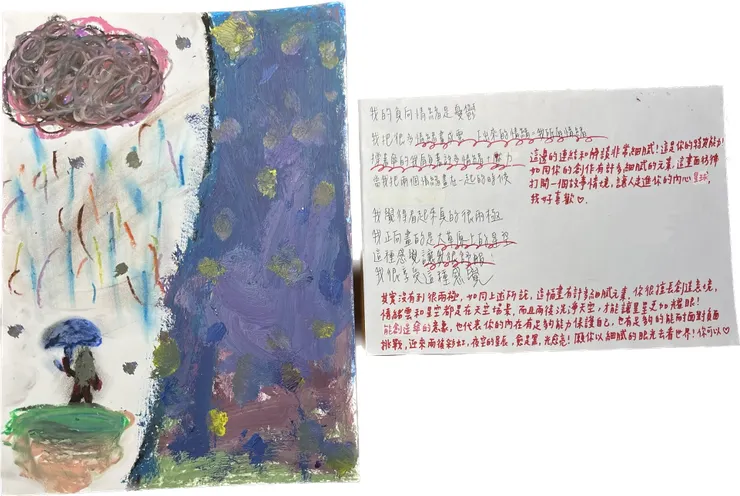 我的負向情緒是憂鬱
我把很多情緒畫成雲 下來的情緒
撐著傘的我有著許多情緒 壓力
當我把兩個情緒畫在一起的時候
這邊的連結和解讀非常細膩!這是你的特殊能力
如同你的創作有許多細膩的元素,這畫面彷彿
打開一個故事情境,讓人走進你的內心星球,
我好喜歡♡。
我覺得看起來真的很兩極
我正向畫的是大草原上的星空
這種感覺讓我很舒服
我很享受這種感覺
其實沒有到很兩極,如同上述所說,這幅畫有許多細膩元素,你很擅長創造意境,
情緒雲和星空都是在天空場景,而且雨後洗淨天空,才能讓星星更加耀眼!
能創造傘的意象,也代表你的內在有足夠能力保護自己,也有足夠的能耐面對負面
挑戰,迎來雨後彩虹,夜空的星辰,愈是黑,光愈亮!願你以細膩的眼光去看世界!你可以♡